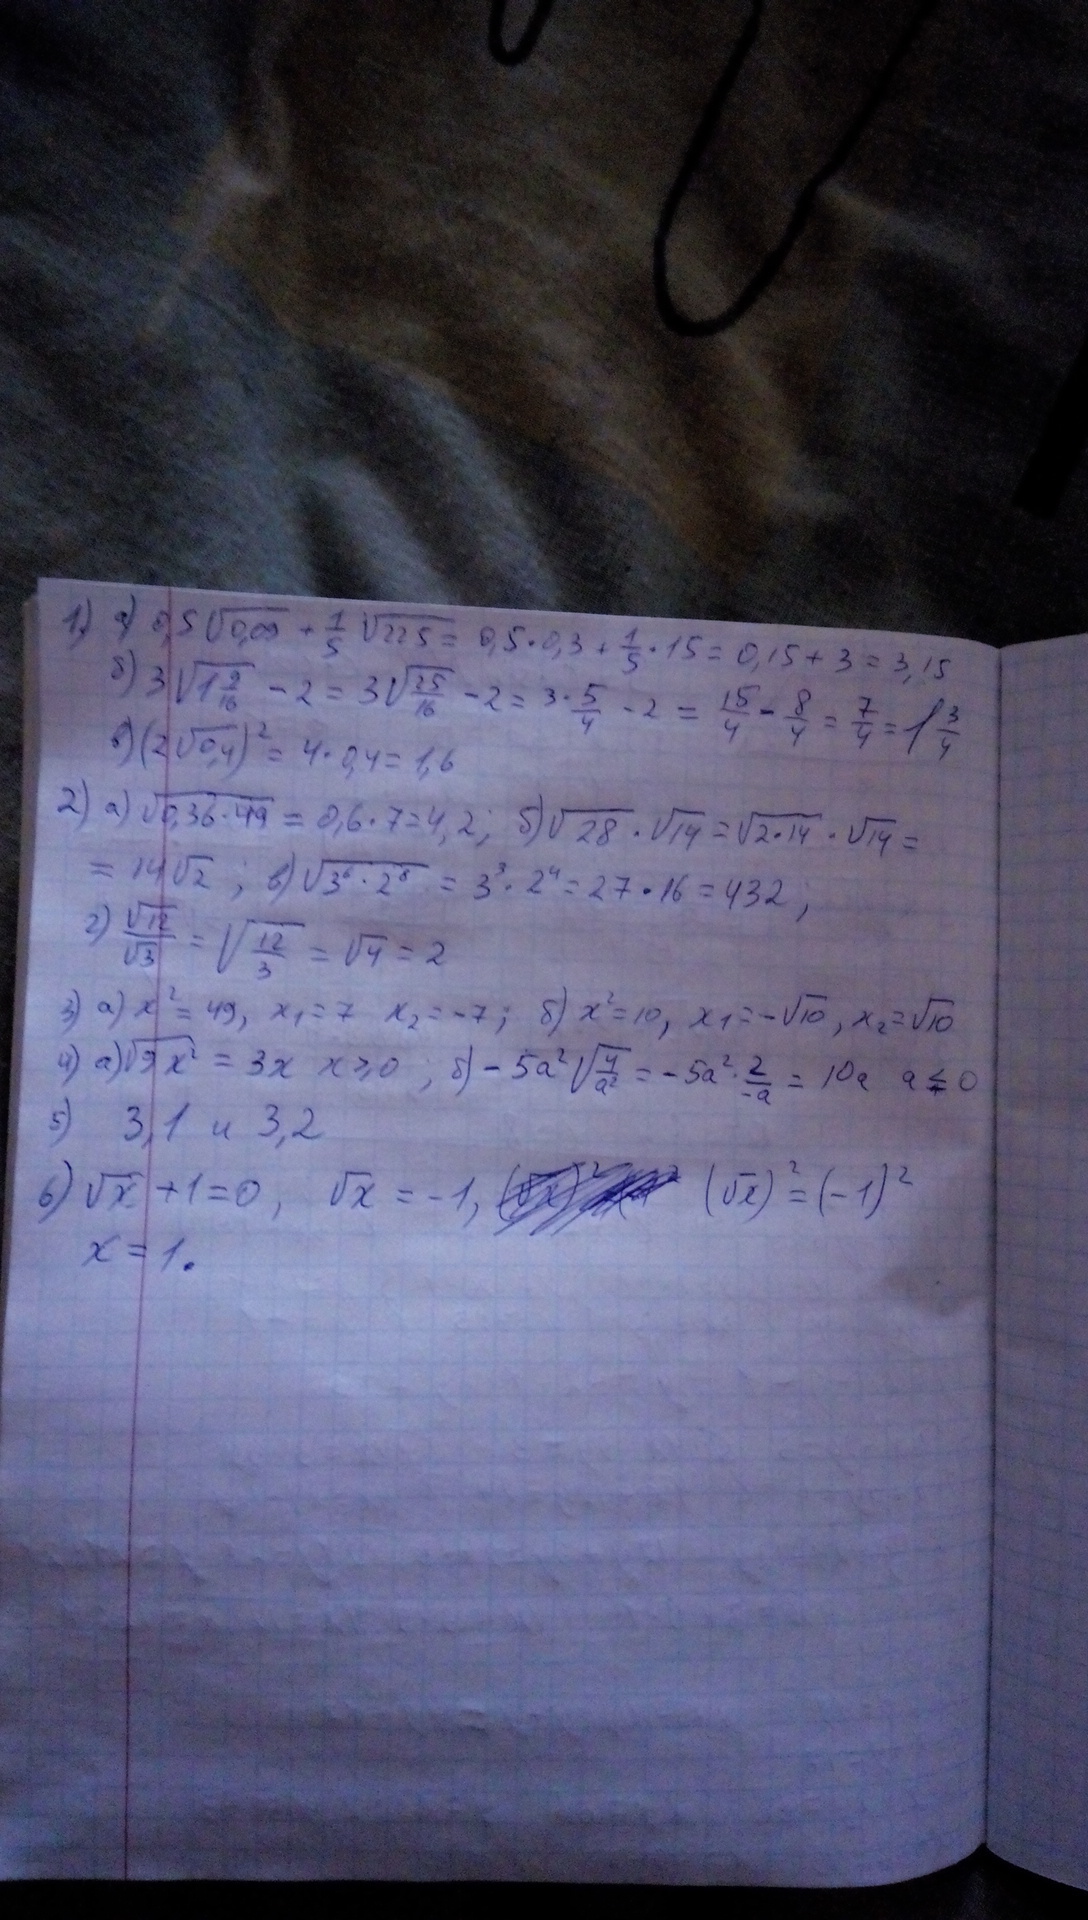 1) а) 0,5√0,09 + 1/5 √225 = 0,5·0,3 + 1/5 · 15 = 0,15 + 3 = 3,15
б) 3√1 9/16 - 2 = 3√25/16 - 2 = 3·5/4 - 2 = 15/4 - 8/4 = 7/4 = 1 3/4
в) (2√0,4)² = 4·0,4 = 1,6
2) а) √0,36·49 = 0,6·7 = 4,2; б) √28 · √14 = √2·14 · √14 =
= 14√2 ; в) √3⁶·2⁸ = 3³·2⁴ = 27·16 = 432;
г) √12/√3 = √12/3 = √4 = 2
3) а) x² = 49, x₁ = 7 x₂ = -7; б) x² = 10, x₁ = -√10, x₂ = √10
4) а) √9x² = 3x x ≥ 0 ; б) -5a²√4/a² = -5a²·2/-a = 10a a ≤ 0
5) 3,1 и 3,2
6) √x + 1 = 0, √x = -1, (√x)² = (-1)²
x = 1.